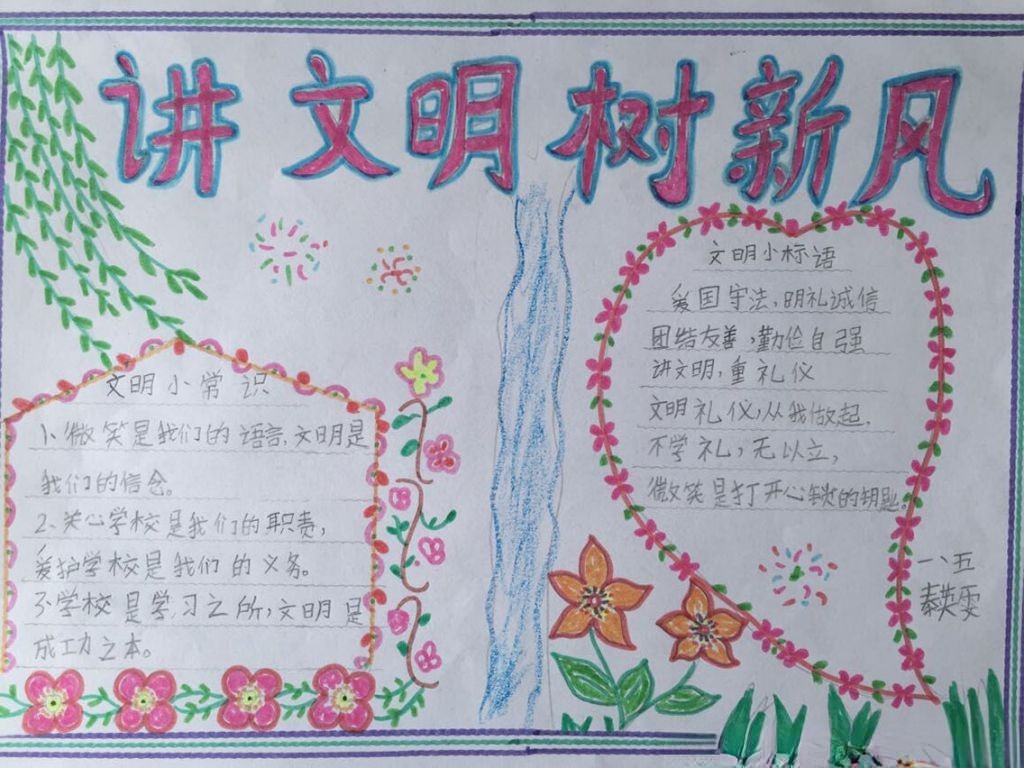 讲文明树新风
文明小常识
1、微笑是我们的语言,文明是
我们的信念。
2、关心学校是我们的职责,
爱护学校是我们的义务。
3、学校是学习之所,文明是
成功之本。
文明小标语
爱国守法,明礼诚信
团结友善,勤俭自强
讲文明,重礼仪
文明礼仪,从我做起,
不学礼,无以立,
微笑是打开心锁的钥匙。
一、五